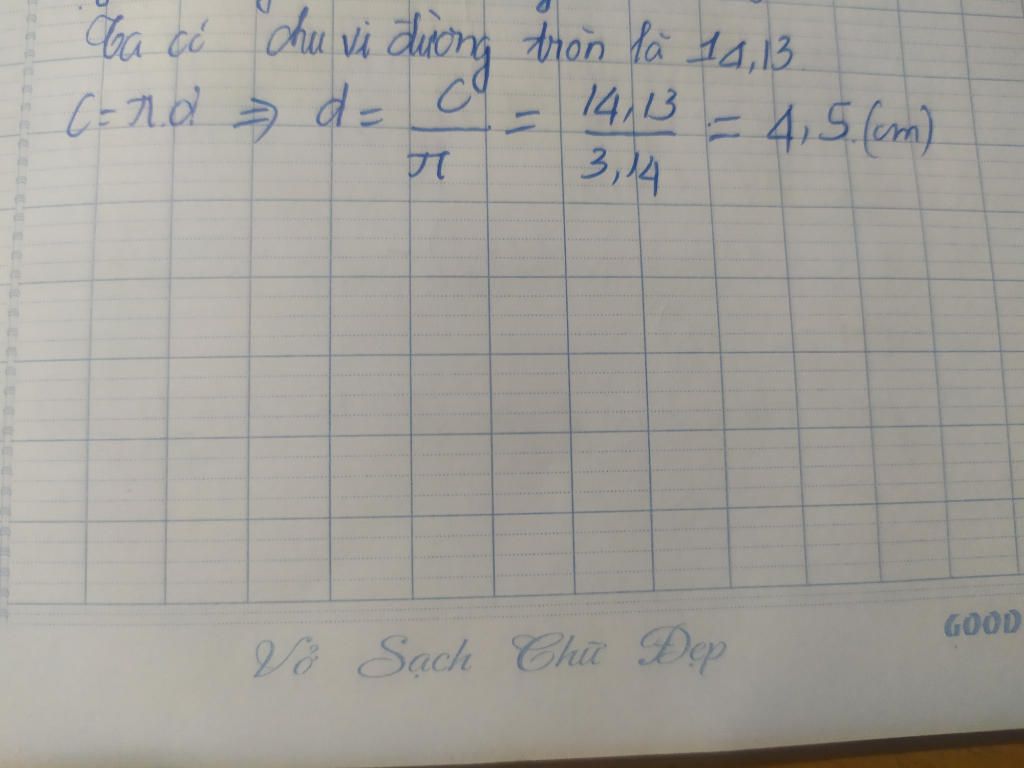 Ta có chu vi đường tròn là 14,13
C = π.d ⇒ d = C/π = 14,13/3,14 = 4,5.(cm)
Vở Sạch Chữ Đẹp
GOOD